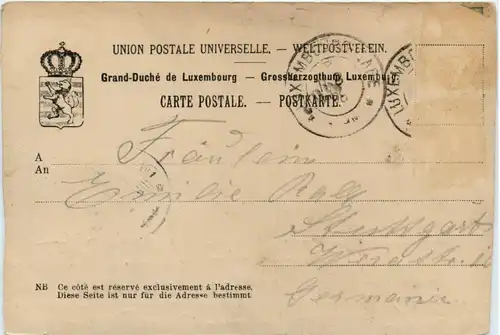 UNION POSTALE UNIVERSELLE. — WELTPOSTVEREIN.
Grand-Duché de Luxembourg — Grossherzogthum Luxemburg
CARTE POSTALE. — POSTKARTE.
LUXEMBOURG-GARE
LUXEMB
A
An
Fräulein
Emilie
Stuttgart
Germania
NB Ce côté est réservé exclusivement à l'adresse.
Diese Seite ist nur für die Adresse bestimmt